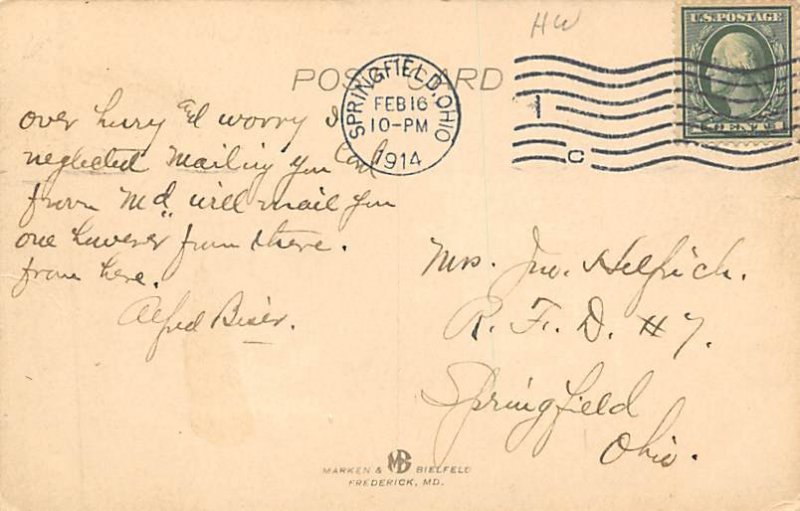 HW
U.S. POSTAGE
POST CARD
SPRINGFIELD, OHIO
FEB 16
10-PM
1914
1
C
over hurry and worry I
neglected mailing you card
from Md, will mail you
one however from there.
from here.
Alfred Beiser.
Mrs. Jno. Helfrich.
R. F. D. #7.
Springfield
Ohio.
MARKEN & MB BIELFELD
FREDERICK, MD.